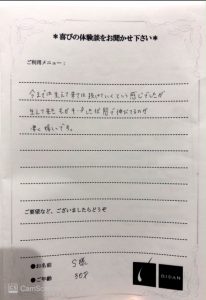 ＊喜びの体験談をお聞かせ下さい＊
ご利用メニュー：
今までは生えて来ては抜けていくという感じでしたが
生えて来た毛がキープした状態で伸びてるのが
凄く嬉しいです。
ご要望など、ございましたらどうぞ
●お名前 S様
●ご年齢
CamScanner